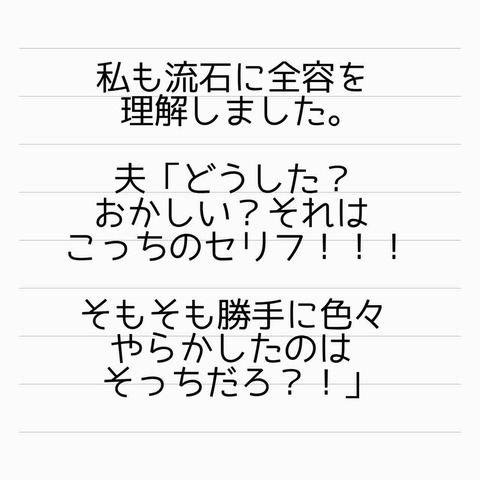 私も流石に全容を
理解しました。
夫「どうした？
おかしい？それは
こっちのセリフ！！！
そもそも勝手に色々
やらかしたのは
そっちだろ？！」